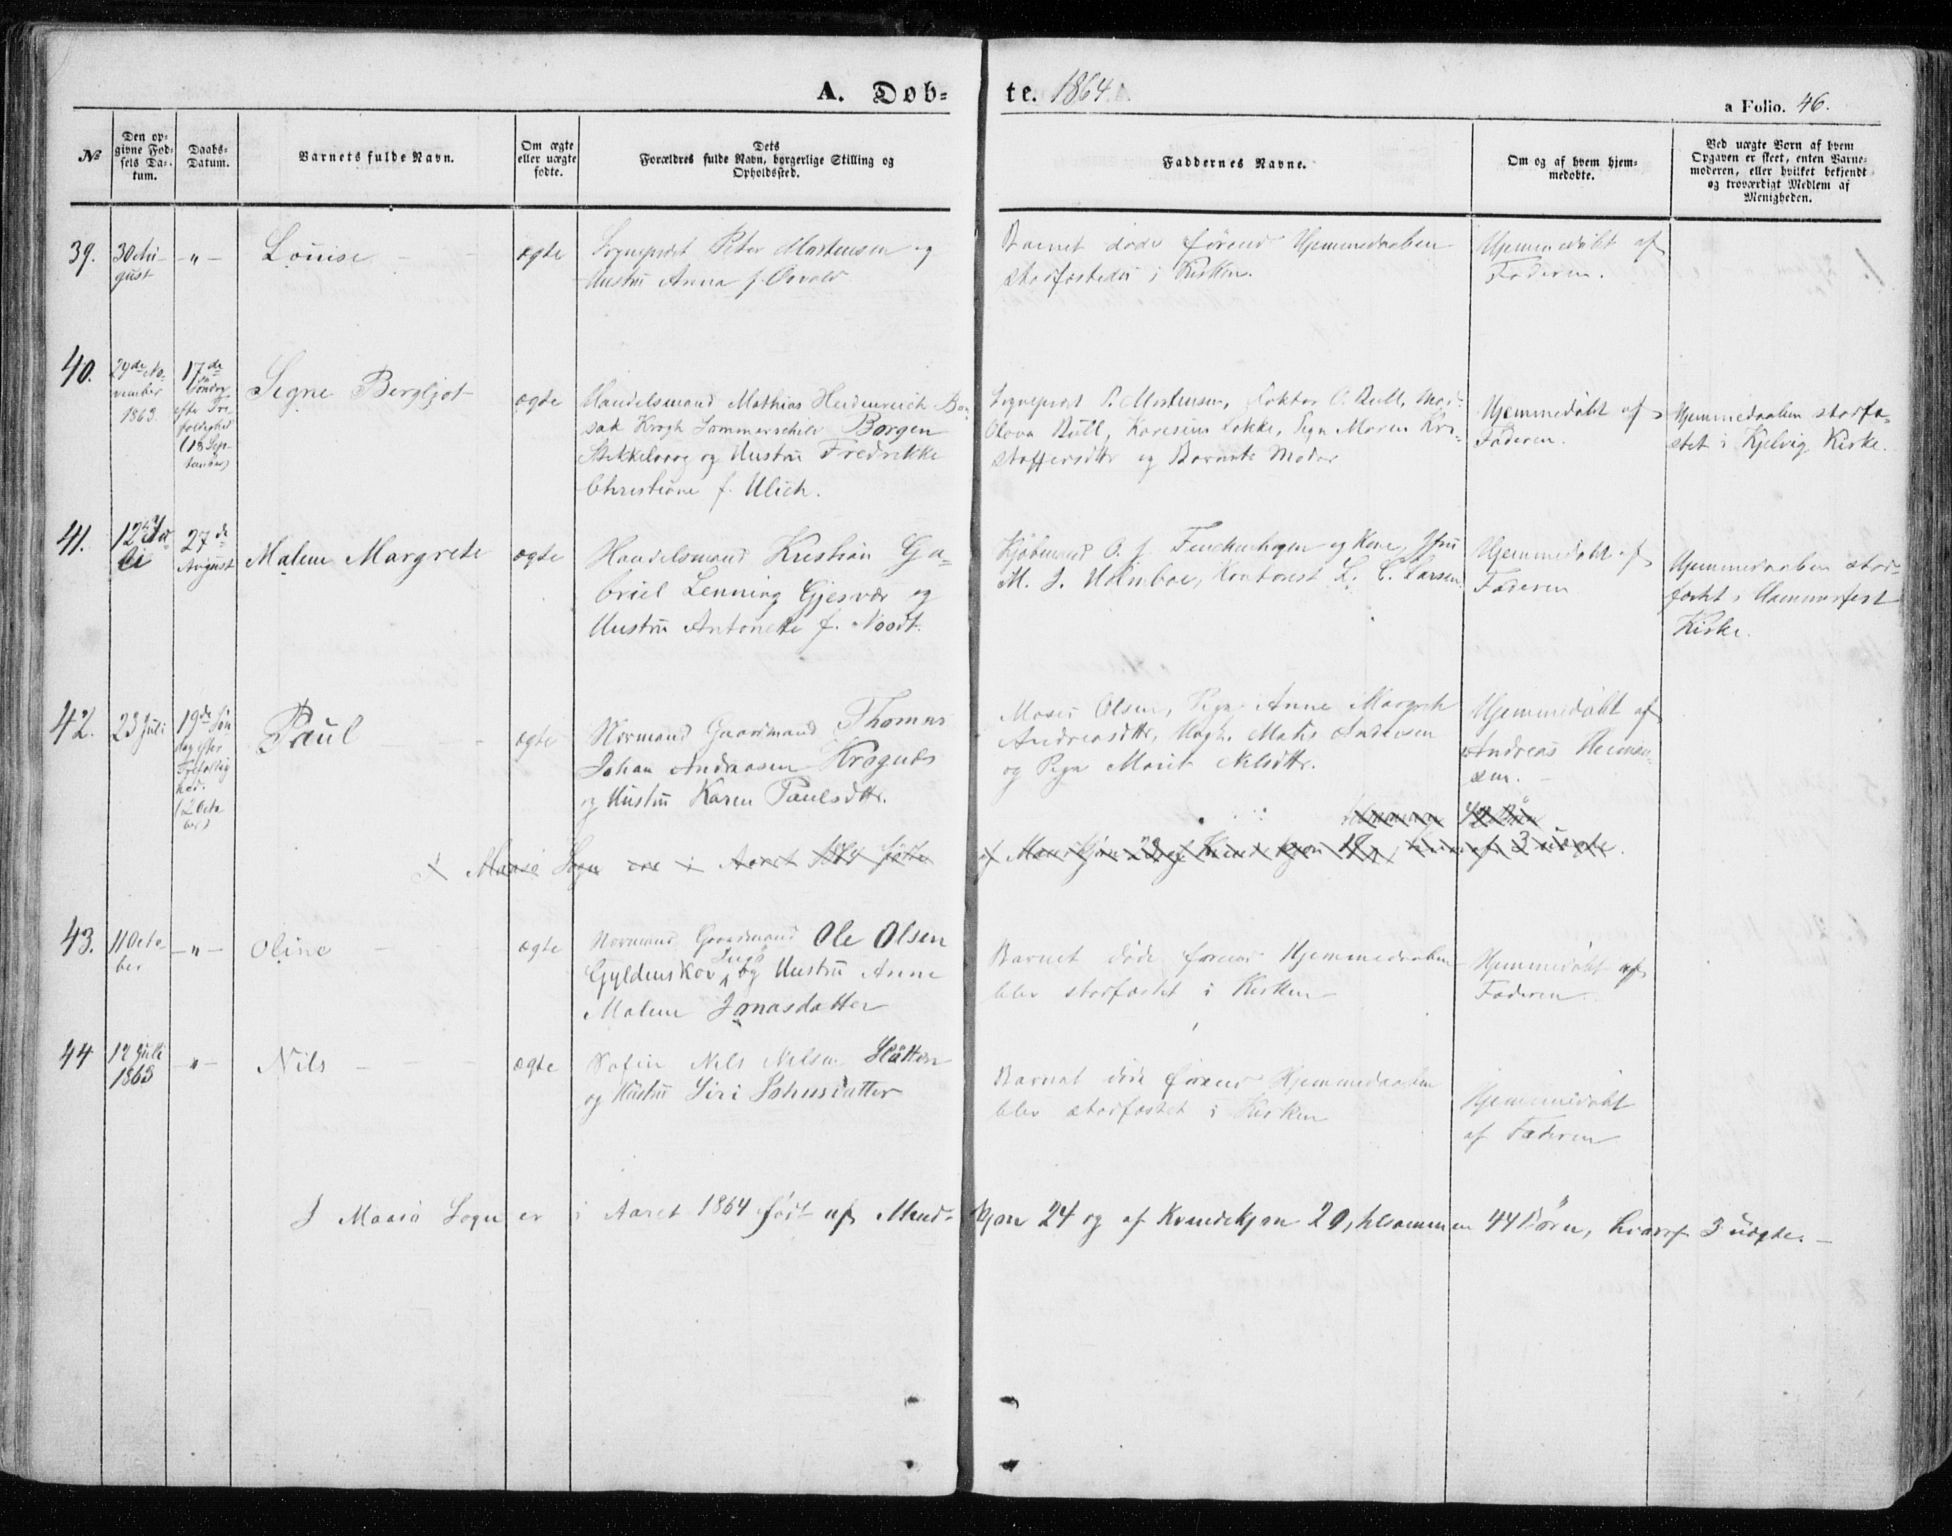 A. Døb-
te. 1864.
a Folio. 46.
No
Den op-
givne Fød-
sels Da-
tum.
Daabs-
Datum.
Barnets fulde Navn.
Om ægte
eller uægte
fødte.
Dets
Forældres fulde Navn, borgerlige Stilling og
Opholdssted.
Faddernes Navne.
Om og af hvem hjem-
medøbte.
Ved uægte Børn af hvem
Opgaven er skeet, enten Barne-
moderen, eller hvilket bekjendt
og troværdigt Medlem af
Menigheden.
39.
30 Au-
gust
-„-
Louise
ægte
Sognepræst Peter Mortensen og
Hustru Anna f.
Barnet døde førend Hjemmedaaben
stadfæstedes i Kirken.
Hjemmedøbt af
Faderen.
40.
29de No-
vember
1863
17de
Søndag
efter Tre
foldighed
(18 Sep-
tember)
Signe Bergljot
ægte
Handelsmand Mathias Heidenreich
Krogh Sommerschild Borgen
og Hustru Fredrikke
Christiane f. Ulich.
Sognepræst P. Mortensen, Doktor O. Bull, Mad.
Olava Bull, Løkke, Pige Maren Kri-
stoffersdtr og Barnets Moder
Hjemmedøbt af
Faderen.
Hjemmedaaben stadfæ-
stet i Kjelvig Kirke.
41.
12te Ju-
li
27de
August
Malene Margrete
ægte
Handelsmand Kristian Ga-
briel Lenning Gjesvær og
Hustru Antonette f. Noodt.
Kjøbmand O. J. Finckenhagen og Kone, Jfru
M. J. Holmboe, Kontorist L. C. Larsen.
Hjemmedøbt af
Faderen
Hjemmedaaben stad-
fæstet i Hammerfest
Kirke.
42.
23 Juli
19de Søn
dag efter
Trefoldig
hed.
(2 Octo
ber)
Paul
ægte
Normand Gaardmand Thomas
Johan Andreasen Krognæs
og Hustru Karen Paulsdtr.
Moses Olsen, Pige Anne Margreth
Andreasdtr, Ungk. Mathis Andersen
og Pige Marit Nilsdtr.
Hjemmedøbt af
Andreas
sen.
tilsammen 42 Børn
I Maasø Sogn ere i Aaret 1864 fødte
af Mandkjøn og af Kvindekjøn 18, 3 uægte.
43.
11 Octo-
ber
-„-
Oline
ægte
Normand Gaardmand Ole Olsen
Gyldenskov og Hustru Anne
Malene Jonasdatter
Barnet døde førend Hjemmedaaben
blev stadfæstet i Kirken
Hjemmedøbt af
Faderen
44
12 Juli
1863
„-
Nils
ægte
Søfin Nils Nilsen Hatten
og Hustru Siri Johnsdatter
Barnet døde førend Hjemmedaaben
blev stadfæstet i Kirken
Hjemmedøbt
af Faderen
I Maasø Sogn er i Aaret 1864 født af Mand-kjøn 24 og af Kvindekjøn 20, tilsammen 44 Børn, hvoraf 3 uægte. -